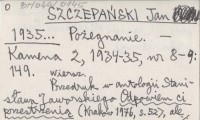 O
SZCZEPAŃSKI Jan
1935... Pożegnanie. –
Kamena 2, 1934-35, nr 8-9:
149. wiersz
Przedruk w antologii Stani-
sława Jaworskiego Odpowiem ci
przestrzenią (Kraków 1976, s. 52), ale,